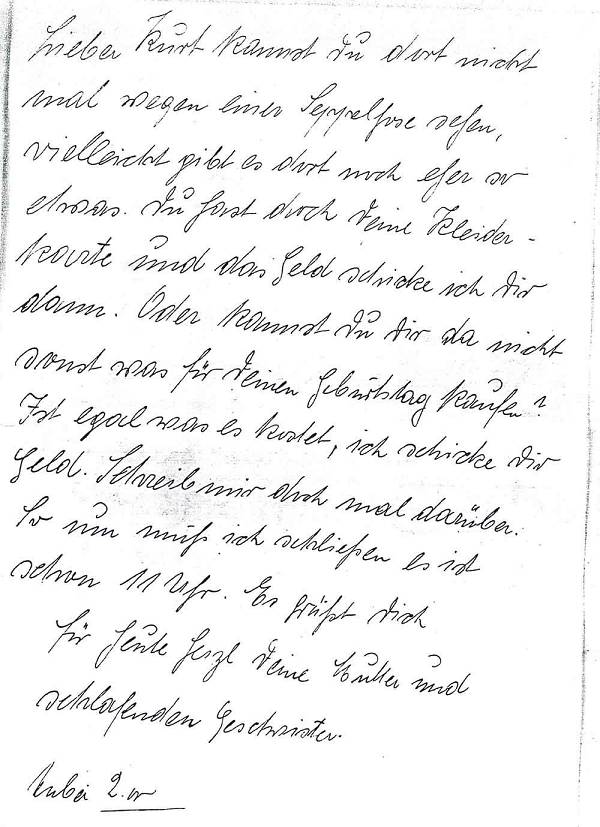 Lieber Kurt kannst Du dort nicht
mal wegen einer Seppelhose sehen,
vielleicht gibt es dort noch eher so
etwas. Du hast doch Deine Kleider-
karte und das Geld schicke ich Dir
dann. Oder kannst Du Dir da nicht
sonst was für Deinen Geburtstag kaufen?
Ist egal was es kostet, ich schicke Dir
Geld. Schreib mir doch mal darüber.
So nun muß ich schließen es ist
schon 11 Uhr. Es grüßt Dich
für heute herzl Deine Mutter und
schlafenden Geschwister.
Anbei 2.